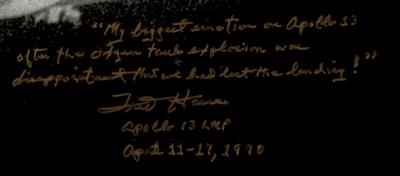 "My biggest emotion on Apollo 13
after the oxygen tank explosion was
disappointment that we had lost the landing!"
Fred Haise
Apollo 13 LMP
April 11-17, 1970